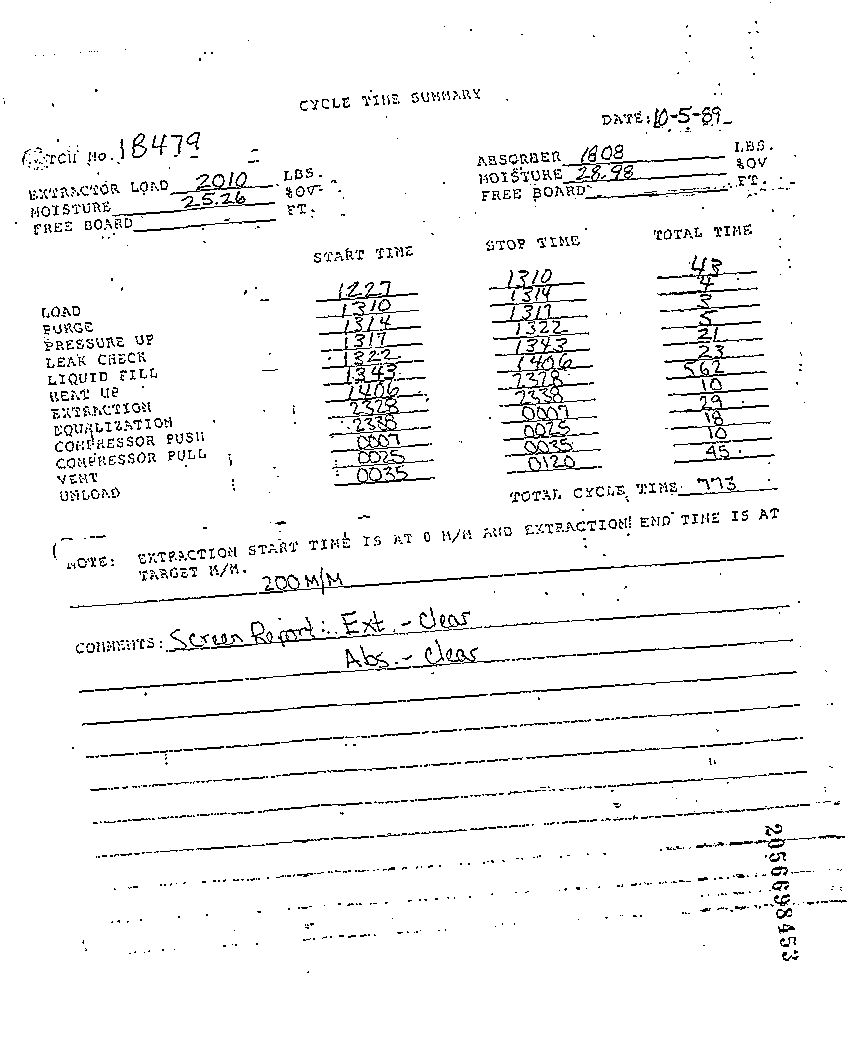 CYCLE TIME SUMMARY
DATE: 10-5-89
BATCH No. 18479
EXTRACTOR LOAD 2010 LBS. ABSORBER 1808 LBS.
MOISTURE 25.26 %OV MOISTURE 28.98 %OV
FREE BOARD FT. FREE BOARD FT.
START TIME STOP TIME TOTAL TIME
LOAD 1227 1310 43
PURGE 1310 1314 4
PRESSURE UP 1314 1317 3
LEAK CHECK 1317 1322 5
LIQUID FILL 1322 1343 21
HEAT UP 1343 1406 23
EXTRACTION 1406 2328 562
EQUALIZATION 2328 2338 10
COMPRESSOR PUSH 2338 0007 29
COMPRESSOR PULL 0007 0025 18
VENT 0025 0035 10
UNLOAD 0035 0120 45
TOTAL CYCLE TIME 773
NOTE: EXTRACTION START TIME IS AT 0 M/M AND EXTRACTION END TIME IS AT
TARGET M/M.
200 M/M
COMMENTS: Screen Report: Ext. - Clear
Abs. - Clear
2056698453